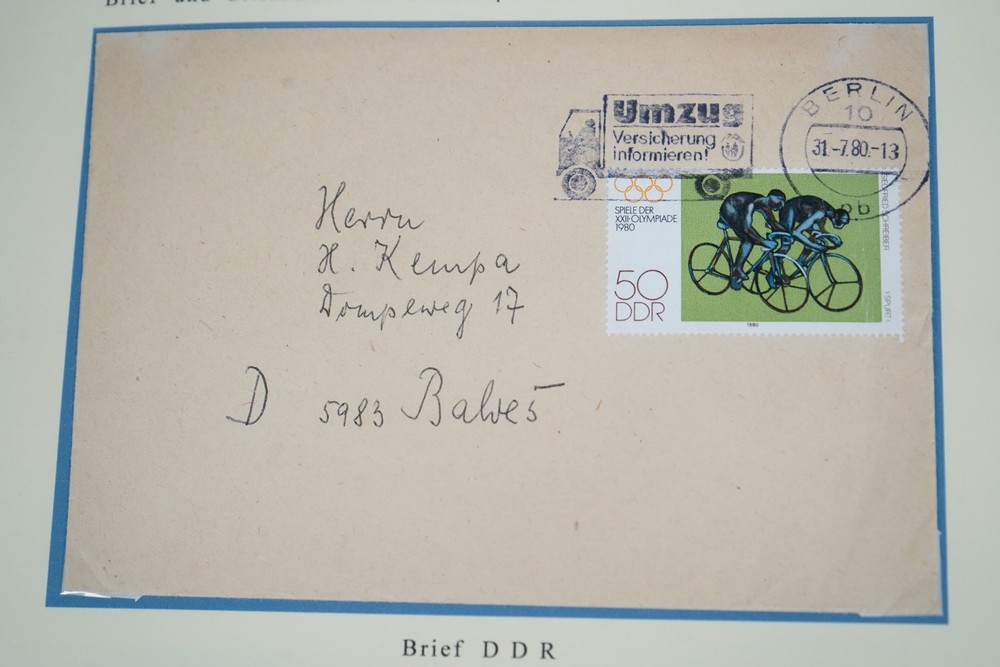 Umzug
Versicherung
informieren!
BERLIN
10
31.-7.80.-13
ob
Herrn
H. Kempa
17
D 5983 Balve 5
SPIELE DER
XXII·OLYMPIADE
1980
50
DDR
SIEGFRIED SCHREIBER
›SPURT‹
1980
Brief DDR